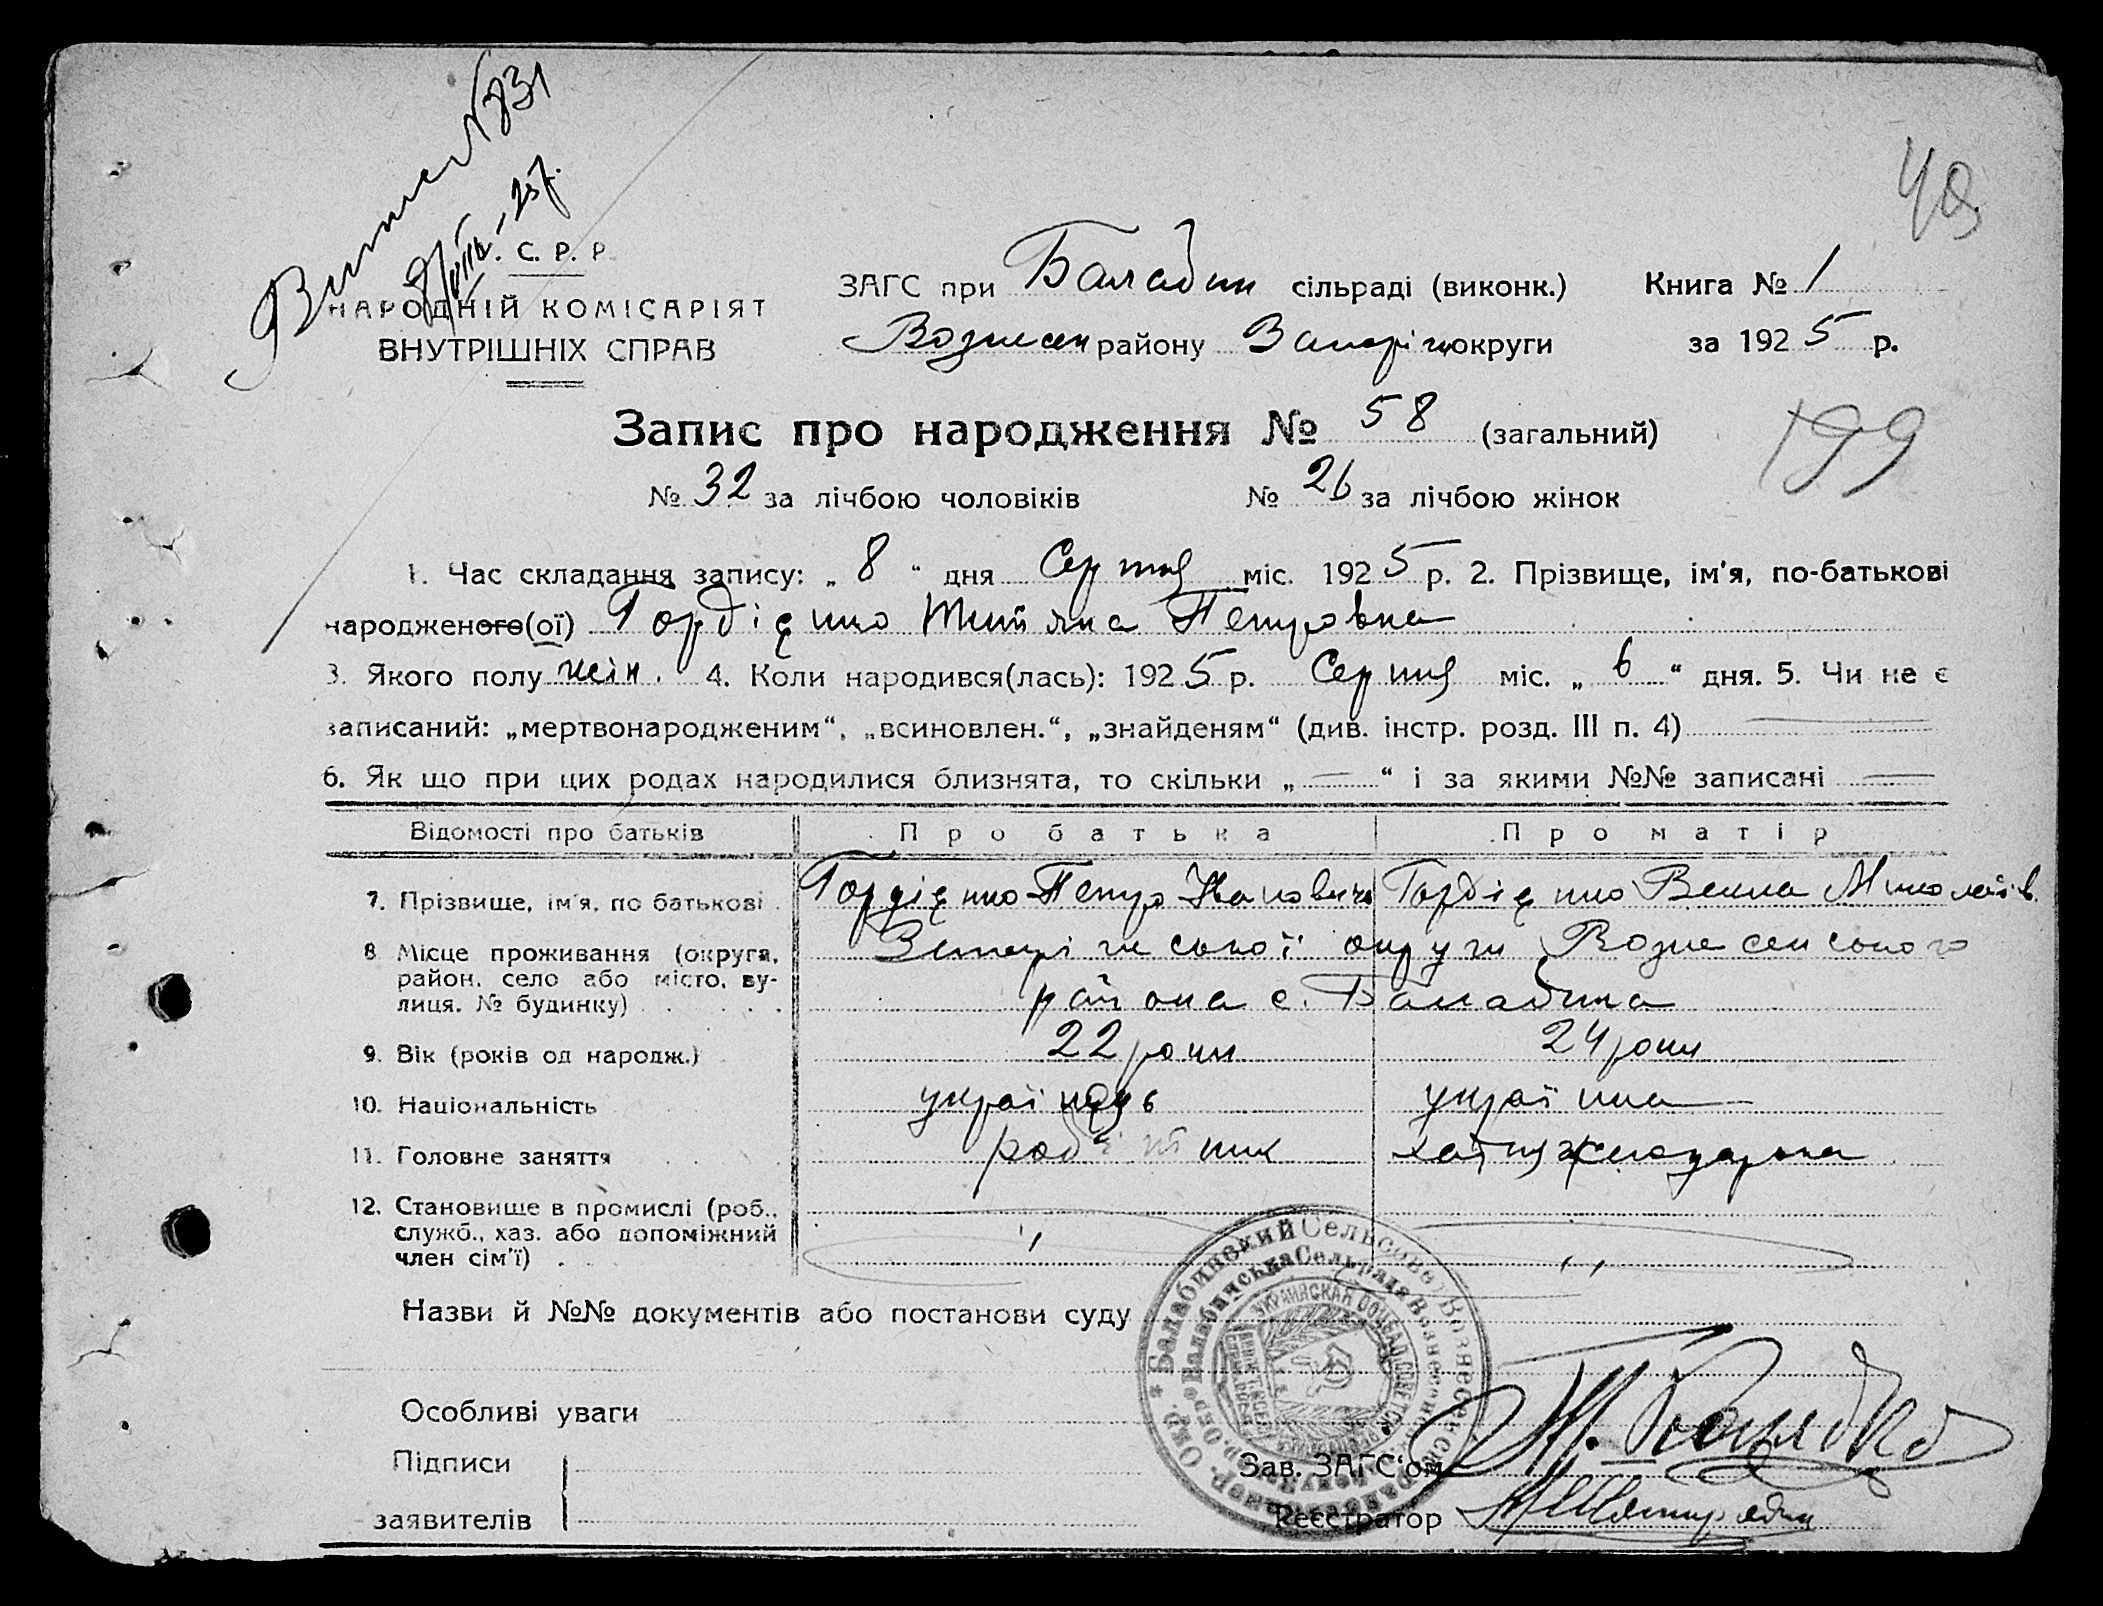 № 831
С. Р. Р.
НАРОДНІЙ КОМІСАРІЯТ
ВНУТРІШНІХ СПРАВ
ЗАГС при Балабин сільраді (виконк.) Книга № 1
Вознесен району Запоріж округи за 1925 р.
Запис про народження № 58 (загальний)
199
№ 32 за лічбою чоловіків № 26 за лічбою жінок
1. Час складання запису: „ 8 “ дня Серпня міс. 1925 р. 2. Прізвище, ім'я, по-батькові
народженого(ої) Гордієнко Титяна Петровна
3. Якого полу жін. 4. Коли народився(лась): 1925 р. Серпня міс. „ 6 “ дня. 5. Чи не є
записаний: „мертвонародженим“, „всиновлен.“, „знайденям“ (див. інстр. розд. III п. 4)
6. Як що при цих родах народилися близнята, то скільки „ — “ і за якими №№ записані —
Відомості про батьків Про батька Про матір
7. Прізвище, ім'я, по батькові Гордієнко Петро Іванович Гордієнко Миколаїв.
8. Місце проживання (округа, район, село або місто, вулиця, № будинку) Запоріжської округи Вознесенського
района с. Балабина
9. Вік (років од народж.) 22 роки 24 роки
10. Національність українець українка
11. Головне заняття робітник
12. Становище в промислі (роб., служб., хаз. або допоміжний член сім'ї) " "
Назви й №№ документів або постанови суду
Особливі уваги
Підписи
заявителів
Зав. ЗАГС'ом
Реєстратор
Балабинский Сельсовет Вознесенск
Балабинська Сельрада
УКРАИНСКАЯ СОЦИАЛ. СОВЕТСК